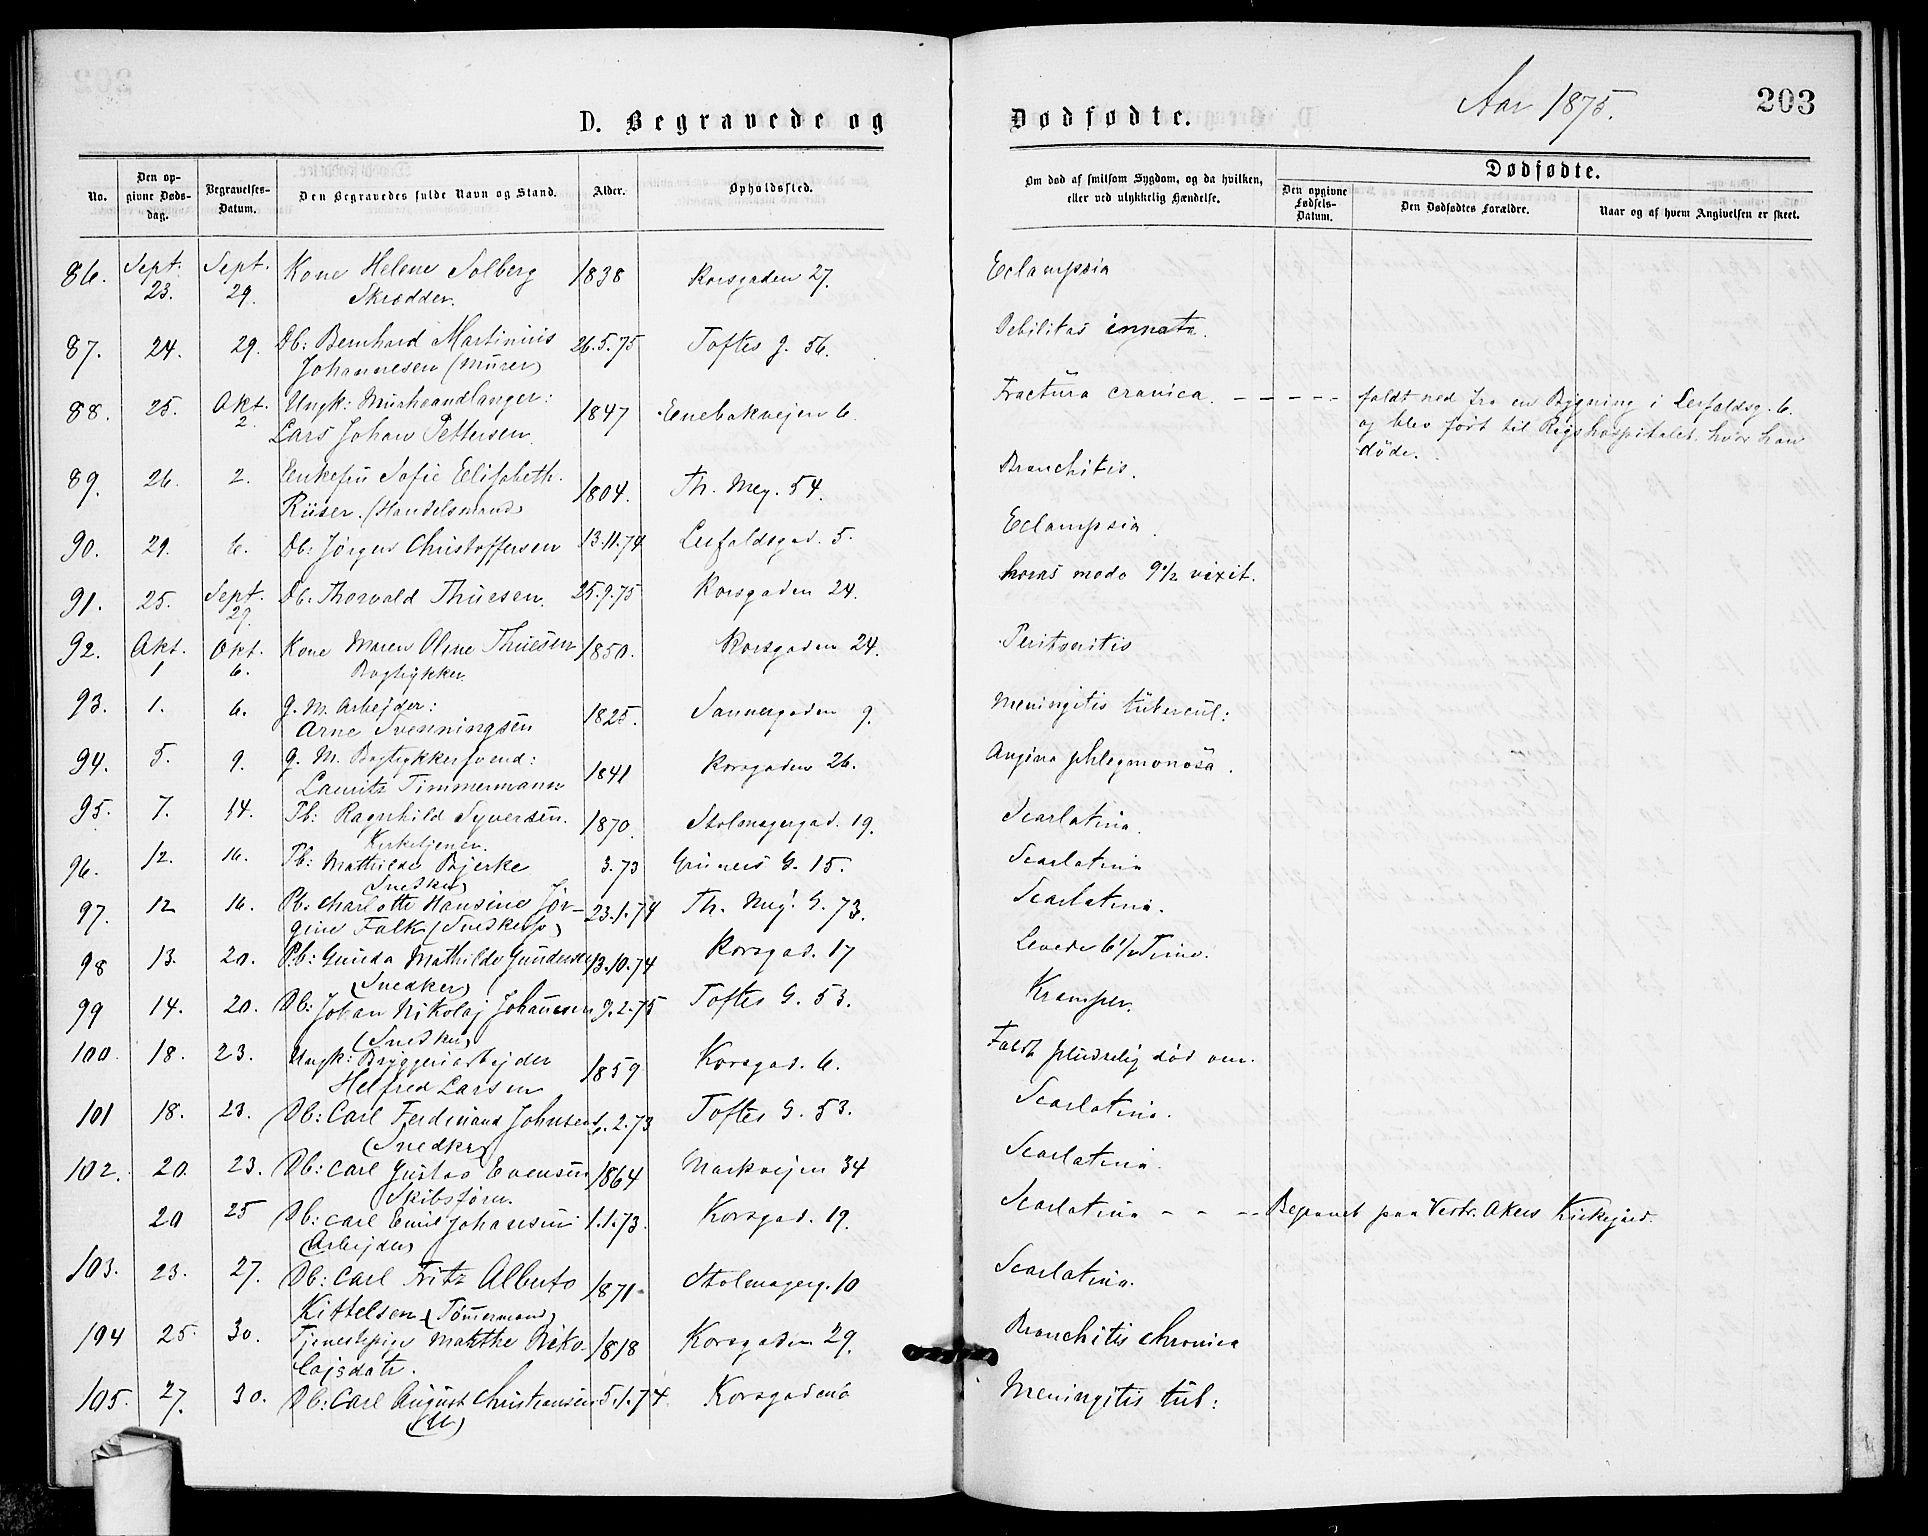 D. Begravede og Dødfødte.
Aar 1875.
203
No.
Den opgivne Dødsdag.
Begravelses-Datum.
Den Begravedes fulde Navn og Stand.
Alder.
Opholdssted.
Om død af smitsom Sygdom, og da hvilken, eller ved ulykkelig Hændelse.
Dødfødte.
Den opgivne Fødsels-Datum.
Den Dødfødtes Forældre.
Naar og af hvem Angivelsen er skeet.
86. Sept. 23. Sept. 29. Kone Helene Solberg 1838 Korsgaden 27. Eclampsia
Skrædder.
87. 24. 29. Db: Bernhard Martinius 26.5.75 Toftes g. 56. Debilitas innata.
Johannesen (Murer)
88. 25. Okt. 2. Ungk: Murhaandlanger: 1847 Enebakvejen 6. Fractura cranica. - - - - - faldt ned fra en Bygning i Lerfaldsg. 6.
Lars Johan Pettersen. og blev ført til Rigshospitalet, hvor han
døde.
89. 26. 2. Enkefru Sofie Elisabeth. 1804. Th. Mey. 54. Bronchitis.
Riiser. (Handelsmand)
90. 29. 6. Db: Jørgen Christoffersen 13.11.74 Lerfaldsgad. 5. Eclampsia.
91. 25. Sept. 29. Db: Thorvald Thuesen. 25.9.75 Korsgaden 24. horas modo 9½ vixit.
92. Okt. 1 Okt. 6. Kone Maren Oline Thuesen 1850. Korsgaden 24. Peritonitis
Bogtrykker.
93. 1. 6. g. M. Arbejder: 1825. Sannergaden 9. Meningitis tubercul:
Arne Svenningsen
94. 5. 9. g. M. Bogtrykkersvend: 1841 Korsgaden 26. Angina phlegmonosa.
Lauritz Timmermann
95. 7. 14. Pb: Ragnhild Syversen. 1870. Stolmagergad. 19. Scarlatina.
Kirketjener.
96. 12. 16. Pb: Mathilde Bjerke 3.73 Grüners G. 15. Scarlatina
(Snedker)
97. 12 16. Pb: Charlotte Hansine Jør- 23.1.74 Th. Mey. G. 73. Scarlatina.
gine Falk (Snedkersv)
98 13. 20. Pb: Gunda Mathilde Gundersen 13.10.74 Korsgad. 17 Levede 6½ Time.
(Snedker)
99 14. 20. Db: Johan Nikolaj Johansen 9.2.75 Toftes G. 53. Kramper.
(Snedker)
100. 18. 23. Ungk: Bryggeriarbejder 1859 Korsgad. 6. Faldt pludselig død om.
Helfred Larsen
101 18. 23. Db: Carl Ferdinand Johnsen 2.73 Toftes G. 53. Scarlatina.
(Snedker)
102. 20. 23. Db: Carl Gustav Evensen 1864 Markvejen 34 Scarlatina.
Skibsførn.
20 25 Db: Carl Emil Johansen 1.1.73. Korsgad. 19. Scarlatina - - - Begravet paa Vestr. Akers Kirkegaard.
(Arbejder)
103. 23. 27. Db: Carl Fritz Alberto 1871 Stolmagerg. 10 Scarlatina.
Kittelsen (Tømmermand)
194 25. 30. Tjenestepige Mahthe Niko- 1818 Korsgaden 29. Bronchitis chronica
lajsdatr.
105. 27. 30. Db: Carl August Christiansen 5.1.74. Korsgaden Meningitis tub:
(U)